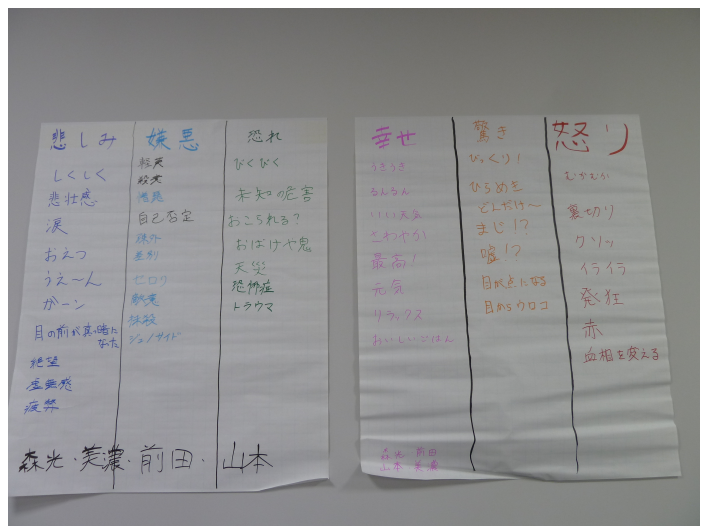 悲しみ
しくしく
悲壮感
涙
おえつ
うえ〜ん
ガーン
目の前が真っ暗に
なった
絶望
虚無感
疲弊
嫌悪
軽蔑
殺意
自己否定
疎外
差別
ジェノサイド
恐れ
びくびく
未知の危害
おこられる?
おばけや鬼
天災
恐怖症
トラウマ
森光・美濃・前田・山本
幸せ
うきうき
るんるん
いい天気
さわやか
最高!
元気
リラックス
おいしいごはん
森光 前田
山本 美濃
驚き
びっくり!
ひらめき
どんだけ〜
まじ!?
嘘!?
目が点になる
目からウロコ
怒り
むかむか
裏切り
クソッ
イライラ
発狂
赤
血相を変える